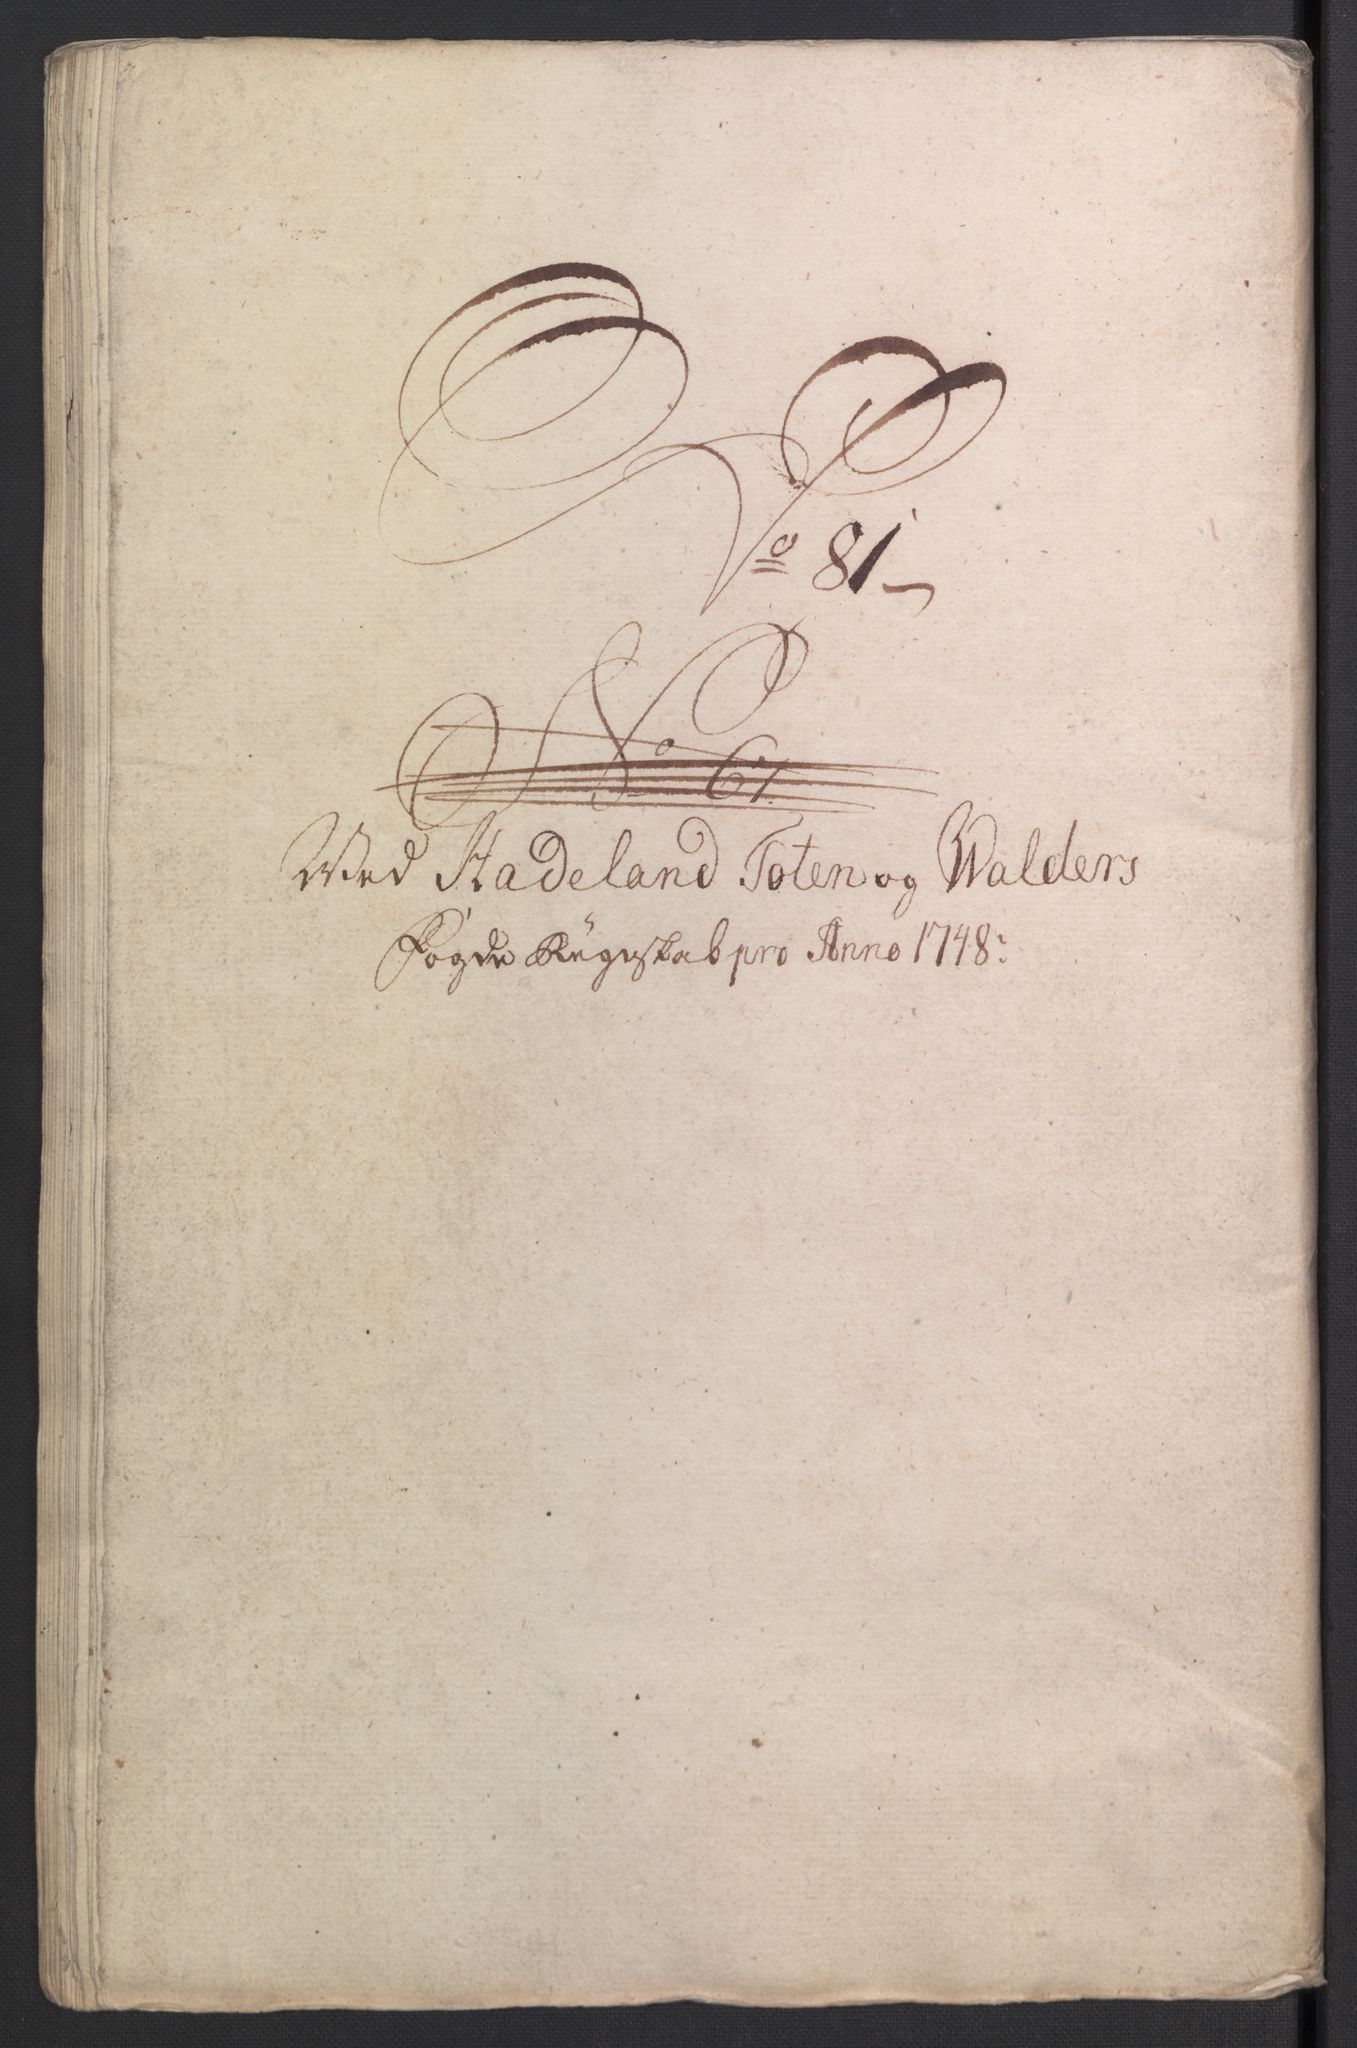 No 81
No 67
Ved Hadeland Toten og Walders
Fogde Regnskab pro Anno 1748: